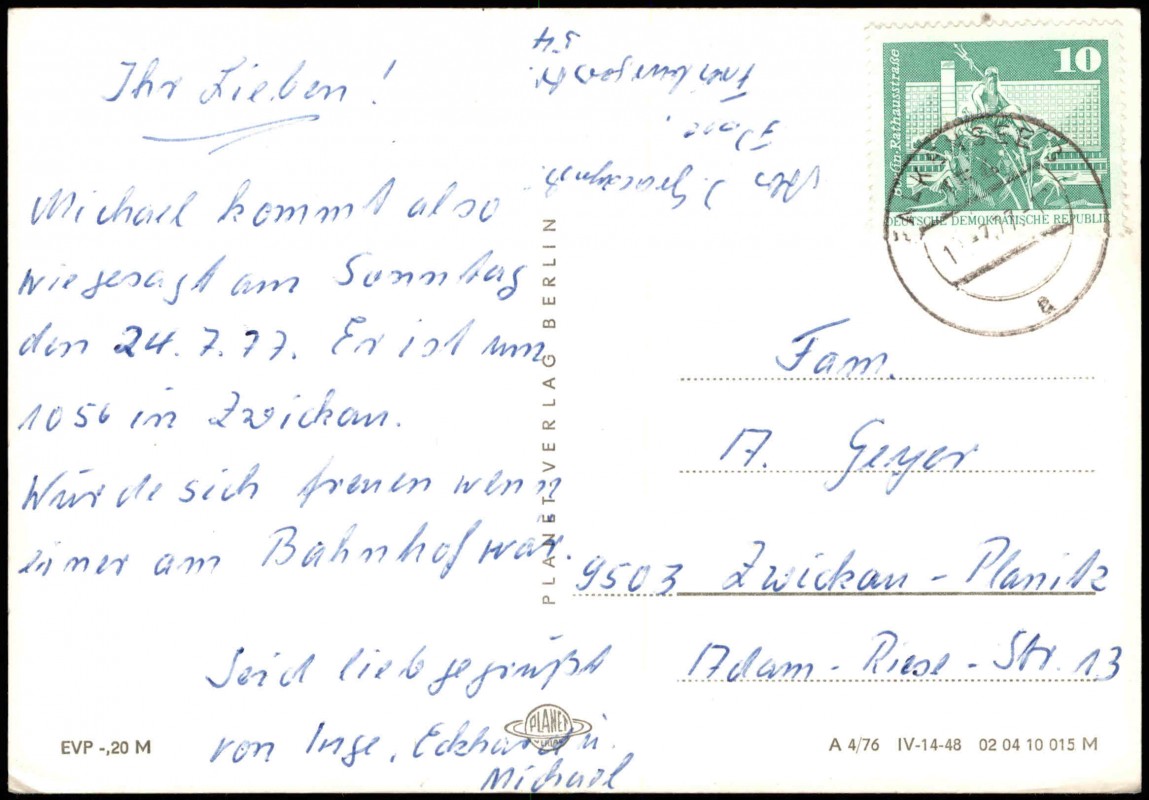 Ihr Lieben!
Michael kommt also
wiegesagt am Sonntag
den 24.7.77. Er ist um
1056 in Zwickau.
Würde sich freuen wenn
einer am Bahnhof wär.
Seid lieb gegrüßt
von Inge, Eckhard u.
Michael
EVP -,20 M
PLANET-VERLAG BERLIN
PLANET
VERLAG
54
10
Berlin-Rathausstraße
DEUTSCHE DEMOKRATISCHE REPUBLIK
a
Fam.
A. Geyer
9503 Zwickau - Planitz
Adam - Riese - Str. 13
A 4/76 IV-14-48 02 04 10 015 M